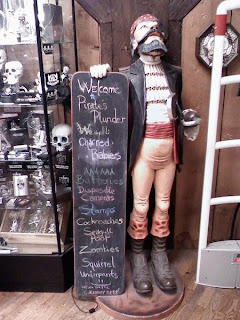 Welcome
Pirates
Plunder
We sell:
Charred
Babies
AAAAAA
Batteries
Disposable
Cement
Stamps
Cockroaches
Seagull
Poop
Zombies
Squirrel
Underpants